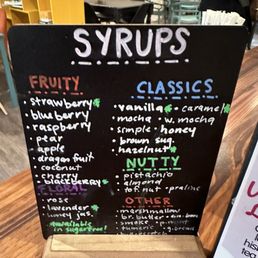 SYRUPS
FRUITY
• strawberry
• blueberry
• raspberry
• pear
• apple
• dragon fruit
• coconut
• cherry
• blackberry
FLORAL
• rose
• lavender
• honey jas.
*available
in sugarfree!
CLASSICS
• vanilla • caramel
• mocha • w. mocha
• simple • honey
• brown sug.
• hazelnut
NUTTY
• pistachio
• almond
• tst. nut • praline
OTHER
• marshmallow
• br. butter
• smoke • p.mint
• turmeric • g.bread
• butterscotch